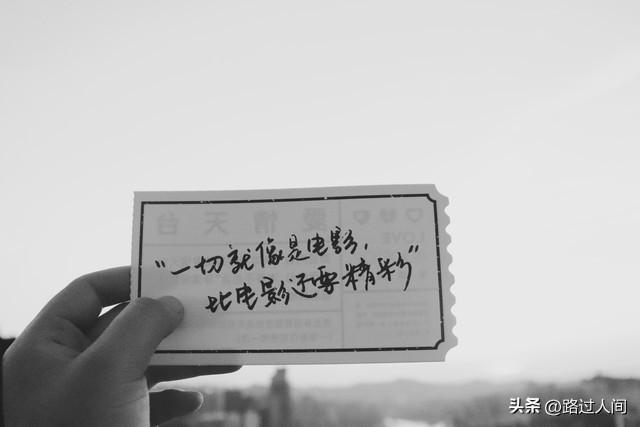 台天情愛
LOVE
"一切就像是电影,
比电影还要精彩"
头条 @路过人间